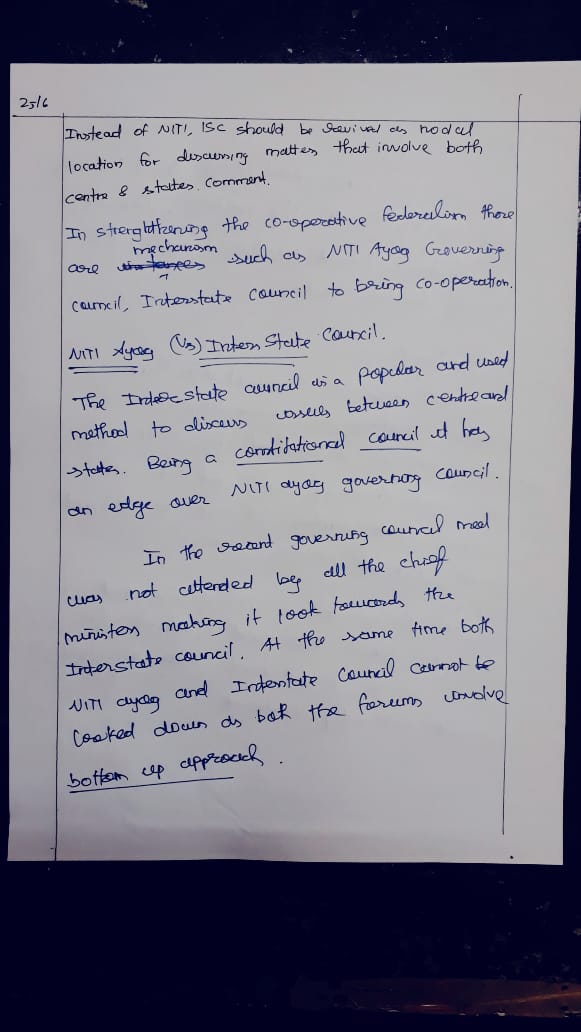 25/6
Instead of NITI, ISC should be revived as nodal
location for discussing matters that involve both
centre & states. Comment.
In strengthening the co-operative federalism there
are mechanism such as NITI Ayog Governing
council, Interstate Council to bring co-operation.
NITI Ayog (Vs) Inter State Council.
The Interstate council is a popular and used
method to discuss issues between centre and
states. Being a constitutional council it has
an edge over NITI ayog governing council.
In the recent governing council meet
was not attended by all the chief
ministers making it look towards the
Interstate council. At the same time both
NITI ayog and Interstate Council cannot be
looked down as both the forums involve
bottom up approach.